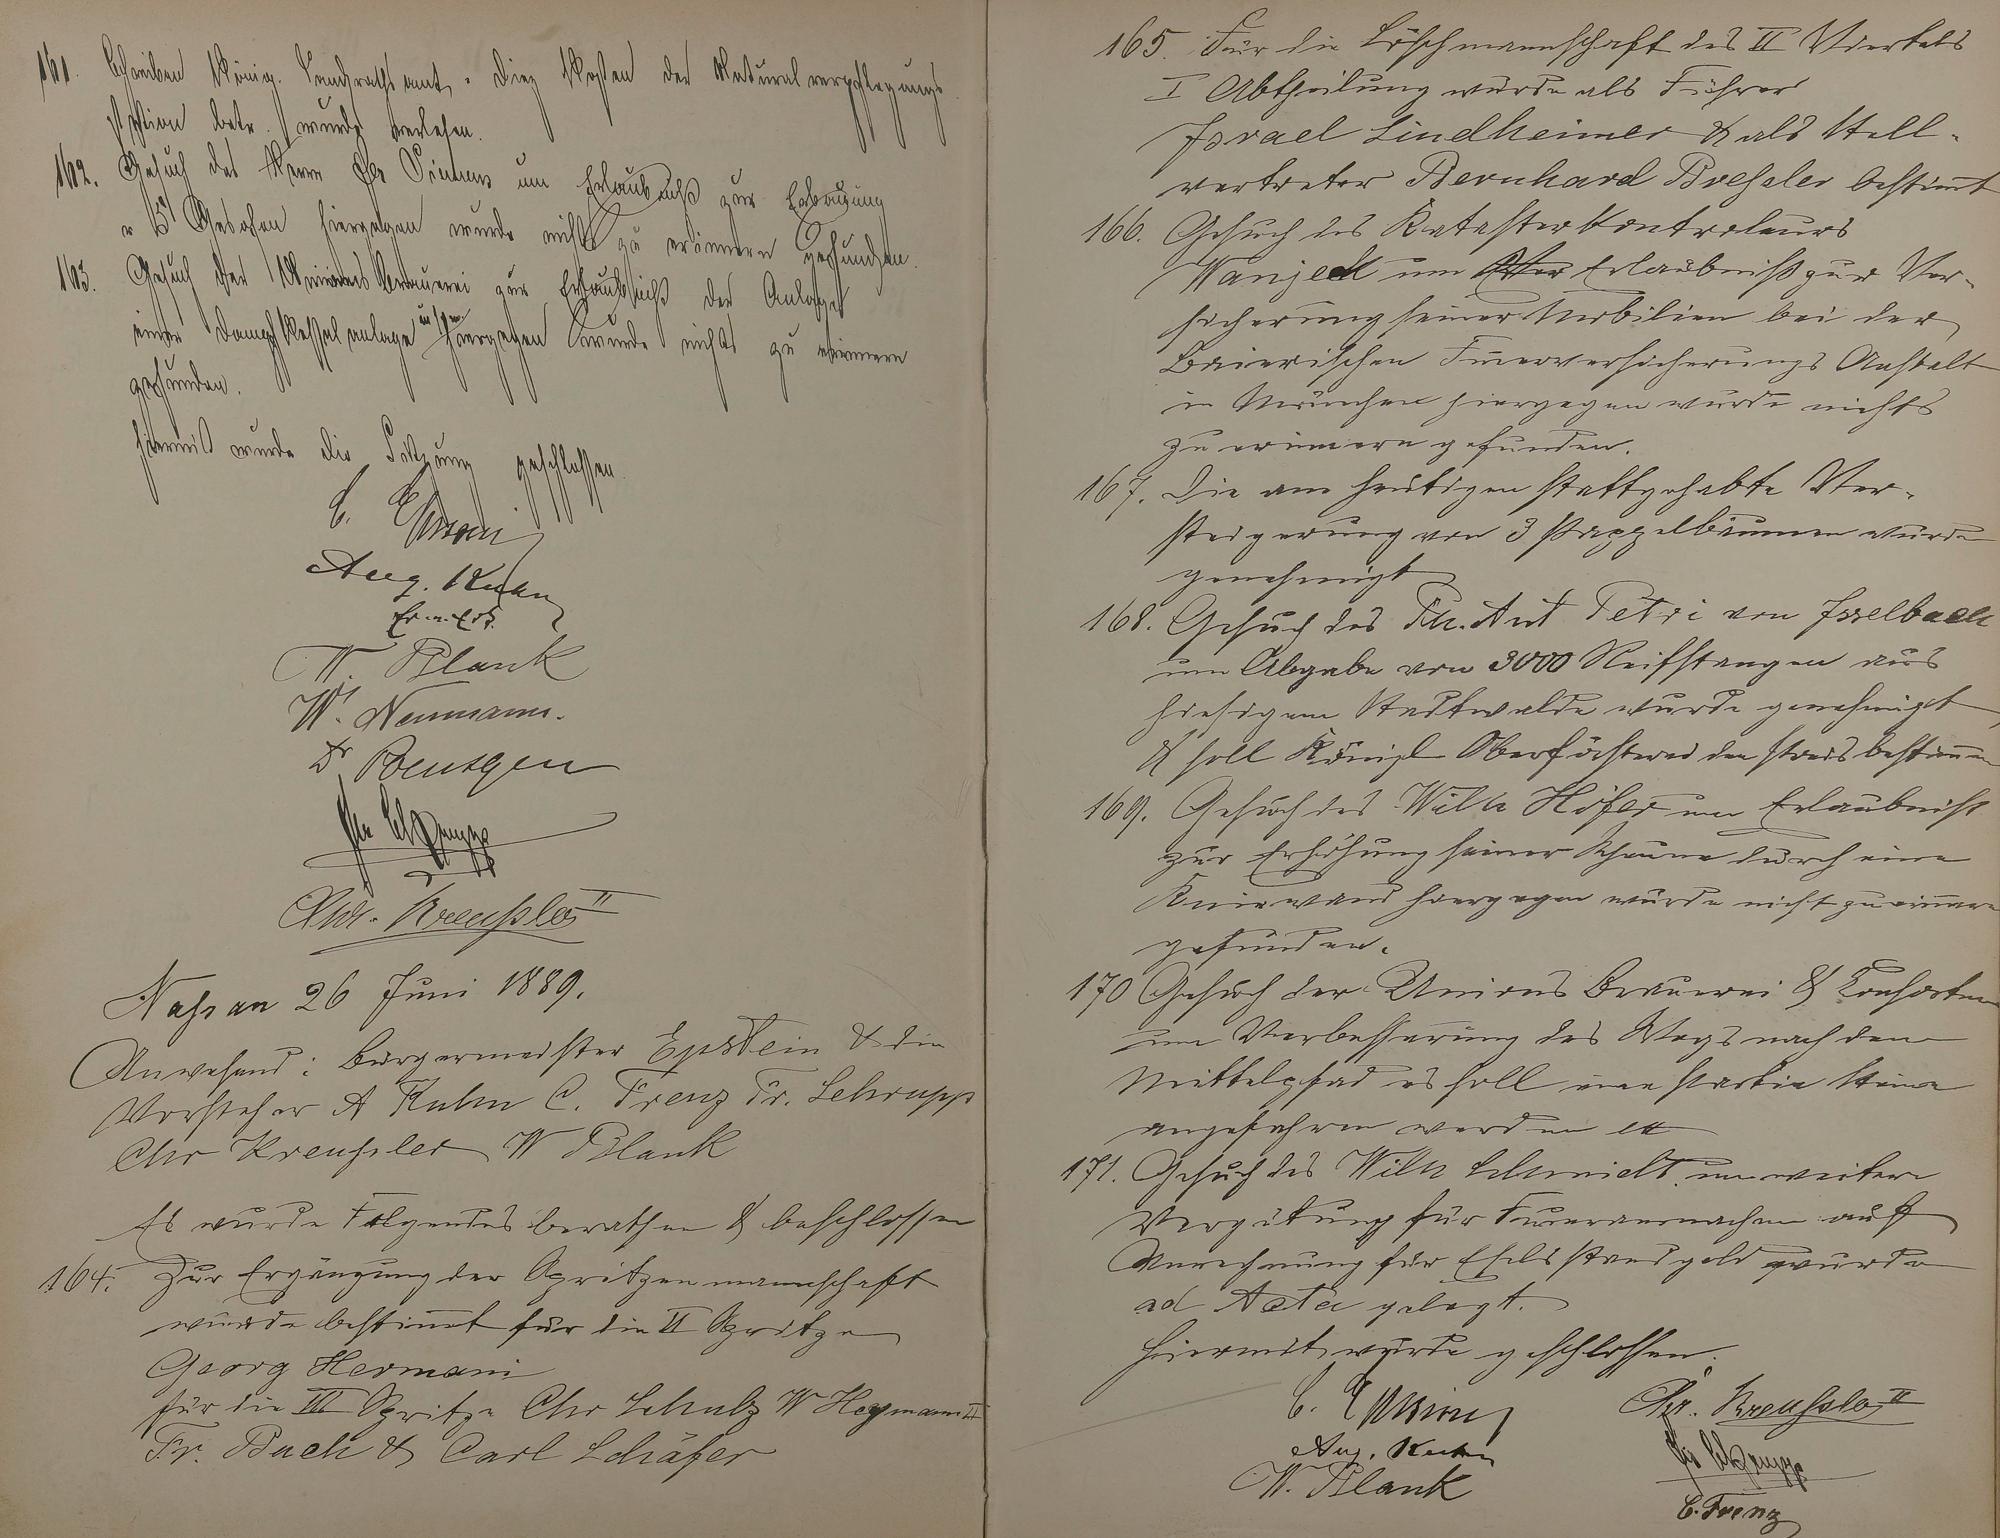 161. Schreiben König. Landrathsamt - Diez Kosten der Naturalverpflegungs
station betr. wurde verlesen.
162. Gesuch des Herrn um Erlaubniß zur Erbauung
hiergegen wurde nichts zu erinnern gefunden.
163. Gesuch der Brauerei zur Erlaubniß der Anlage
einer Dampfkesselanlage hiergegen wurde nichts zu erinnern
gefunden.
hiermit wurde die Sitzung geschlossen
Aug. Kuhn
W. Blank
W. Neumann.
Dr Roentgen
Fr Schrupp
Chr. Kreußler II
Nassau 26 Juni 1889.
Anwesend: Bürgermeister Epstein & die
Vorsteher A Kuhn C. Frenz Fr. Schrupp
Chr Kreußler W Blank
Es wurde Folgendes berathen & beschlossen
164. Zur Ergänzung der Spritzenmannschaft
wurde bestimt für die II Spritze
Georg Hermani
für die III Spritze Chr Schulz W Heymann II
Fr. Buch & Carl Schäfer
165. Für die Löschmannschaft des II Viertels
I Abtheilung wurde als Führer
Israel Lindheimer & als Stell-
vertreter Bernhard Breßler bestimt
166. Gesuch des Katasterkontroleurs
Wanjeck um Erlaubniß zur Ver-
sicherung seiner Mobilien bei der
Baierischen Feuerversicherungs Anstalt
in München hiergegen wurde nichts
zu erinnern gefunden.
167. Die am heutigen stattgehabte Ver-
steigerung von 3 Pappelbäumen wurde
genehmigt
168. Gesuch des Ph. Ant Petri von Isselbach
um Abgabe von 3000 Reifstangen aus
hiesigem Stadtwalde wurde genehmigt
& soll Königl Oberförsterei den Preis bestimen
169. Gesuch des Wilh Höfer um Erlaubniß
zur Erhöhung seiner Scheune durch eine
Kniewand hiergegen wurde nicht zu erinnern
gefunden.
170 Gesuch der Unions Brauerei & Consorten
um Verbesserung des Wegs nach dem
Mittelpfad es soll eine Parthie Steine
angefahren werden
171. Gesuch des Wilh Schmidt um weitere
Vergütung für Feueranmachen auf
Anrechnung für Eselsstandgeld wurde
ad Acta gelegt.
Hiermit wurde geschlossen.
Chr. Kreußler II
Aug. Kuhn
Fr Schrupp
W. Blank
C. Frenz